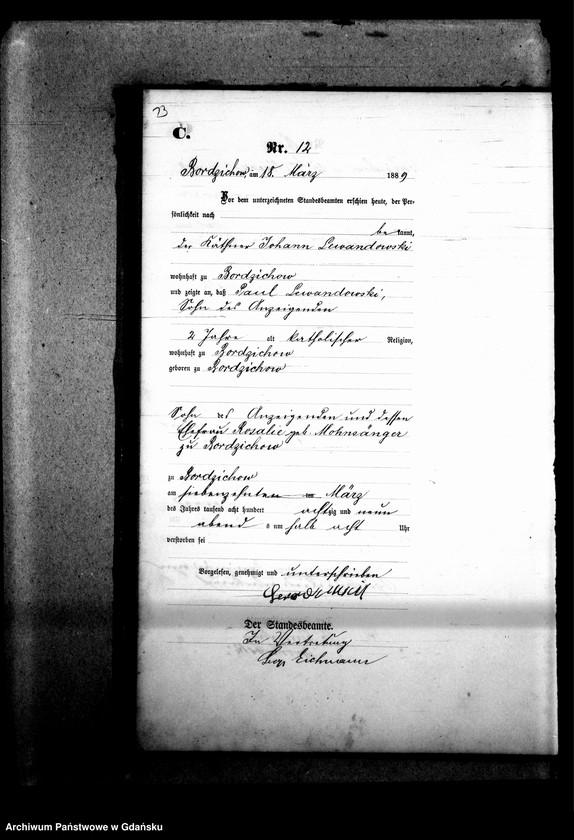 23
C.
Nr. 12
Bordzichow, am 18. März 1889
Vor dem unterzeichneten Standesbeamten erschien heute, der Per-
sönlichkeit nach
be kannt,
der Käthner Johann Lewandowski
wohnhaft zu Bordzichow
und zeigte an, daß Paul Lewandowski,
Sohn des Anzeigenden
2 Jahre alt katholischer Religion,
wohnhaft zu Bordzichow
geboren zu Bordzichow
Sohn des Anzeigenden und dessen
Ehefrau Rosalie geb. Mohnsänger
zu Bordzichow
zu Bordzichow
am siebenzehnten März
des Jahres tausend acht hundert achtzig und neun
abend s um halb acht Uhr
verstorben sei
Vorgelesen, genehmigt und unterschrieben
Der Standesbeamte.
In Vertretung
Eichmann
Archiwum Państwowe w Gdańsku